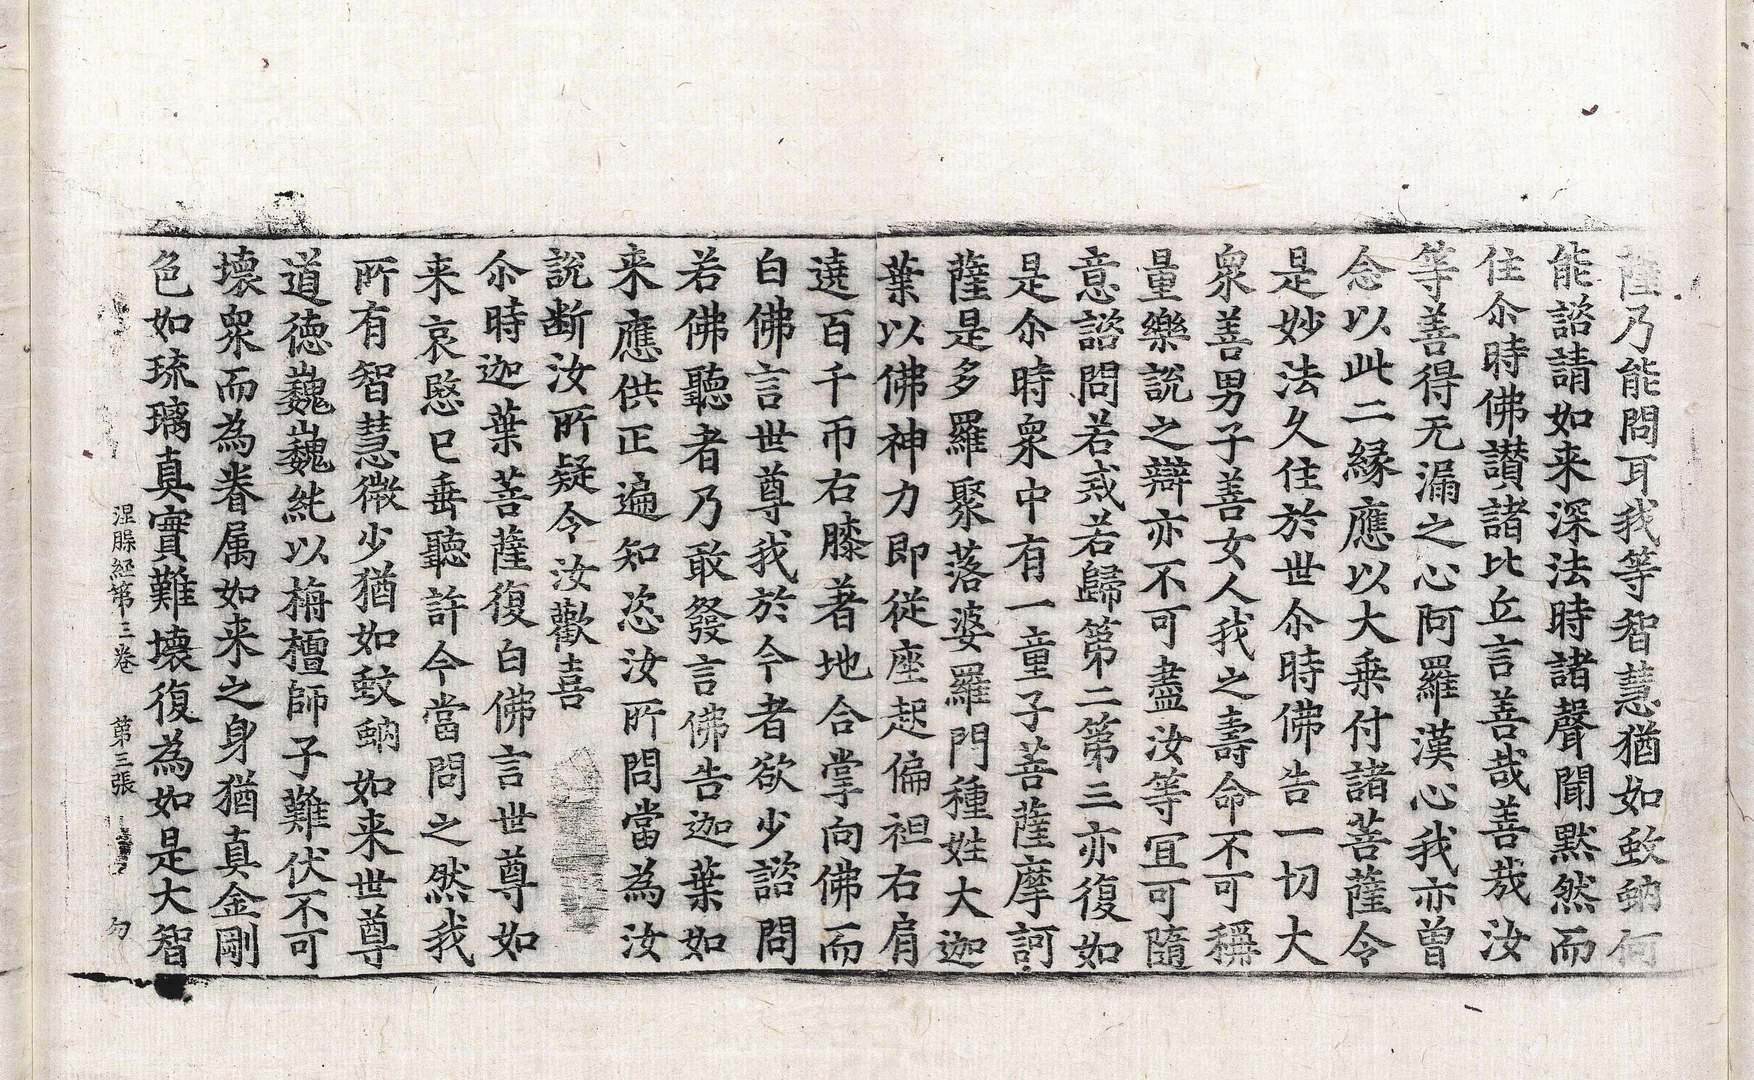 薩乃能問耳我等智慧猶如蚊蚋何
能諮請如来深法時諸聲聞黙然而
住尒時佛讃諸比丘言善哉善哉汝
等善得无漏之心阿羅漢心我亦曾
念以此二縁應以大乗付諸菩薩令
是妙法久住於世尒時佛告一切大
衆善男子善女人我之壽命不可稱
量樂說之辯亦不可盡汝等宜可隨
意諮問若戒若歸第二第三亦復如
是尒時衆中有一童子菩薩摩訶
薩是多羅聚落婆羅門種姓大迦
葉以佛神力即從座起偏袒右肩
遶百千帀右膝著地合掌向佛而
白佛言世尊我於今者欲少諮問
若佛聽者乃敢發言佛告迦葉如
来應供正遍知恣汝所問當為汝
說断汝所疑令汝歡喜
尒時迦葉菩薩復白佛言世尊如
来哀愍已垂聽許今當問之然我
所有智慧微少猶如蚊蚋如来世尊
道徳巍巍純以栴檀師子難伏不可
壊衆而為眷属如来之身猶真金剛
色如琉璃真實難壊復為如是大智
涅槃経第三卷 第三張 匀